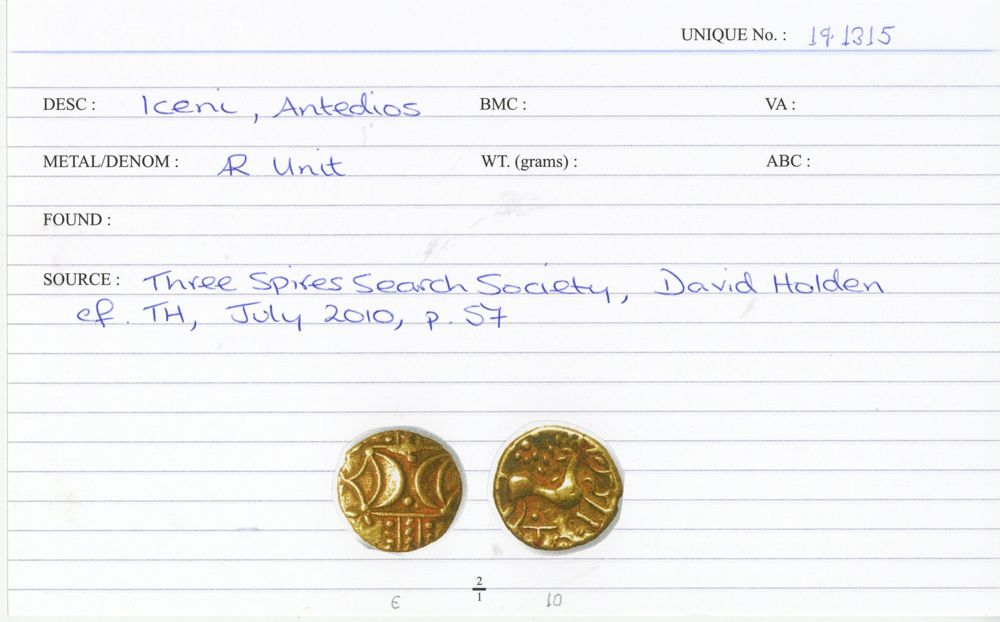 UNIQUE No. : 19.1315
DESC : Iceni, Antedios BMC : VA :
METAL/DENOM : AR Unit WT. (grams) : ABC :
FOUND :
SOURCE : Three Spires Search Society, David Holden
cf. TH, July 2010, p. 57
2
1
6 10